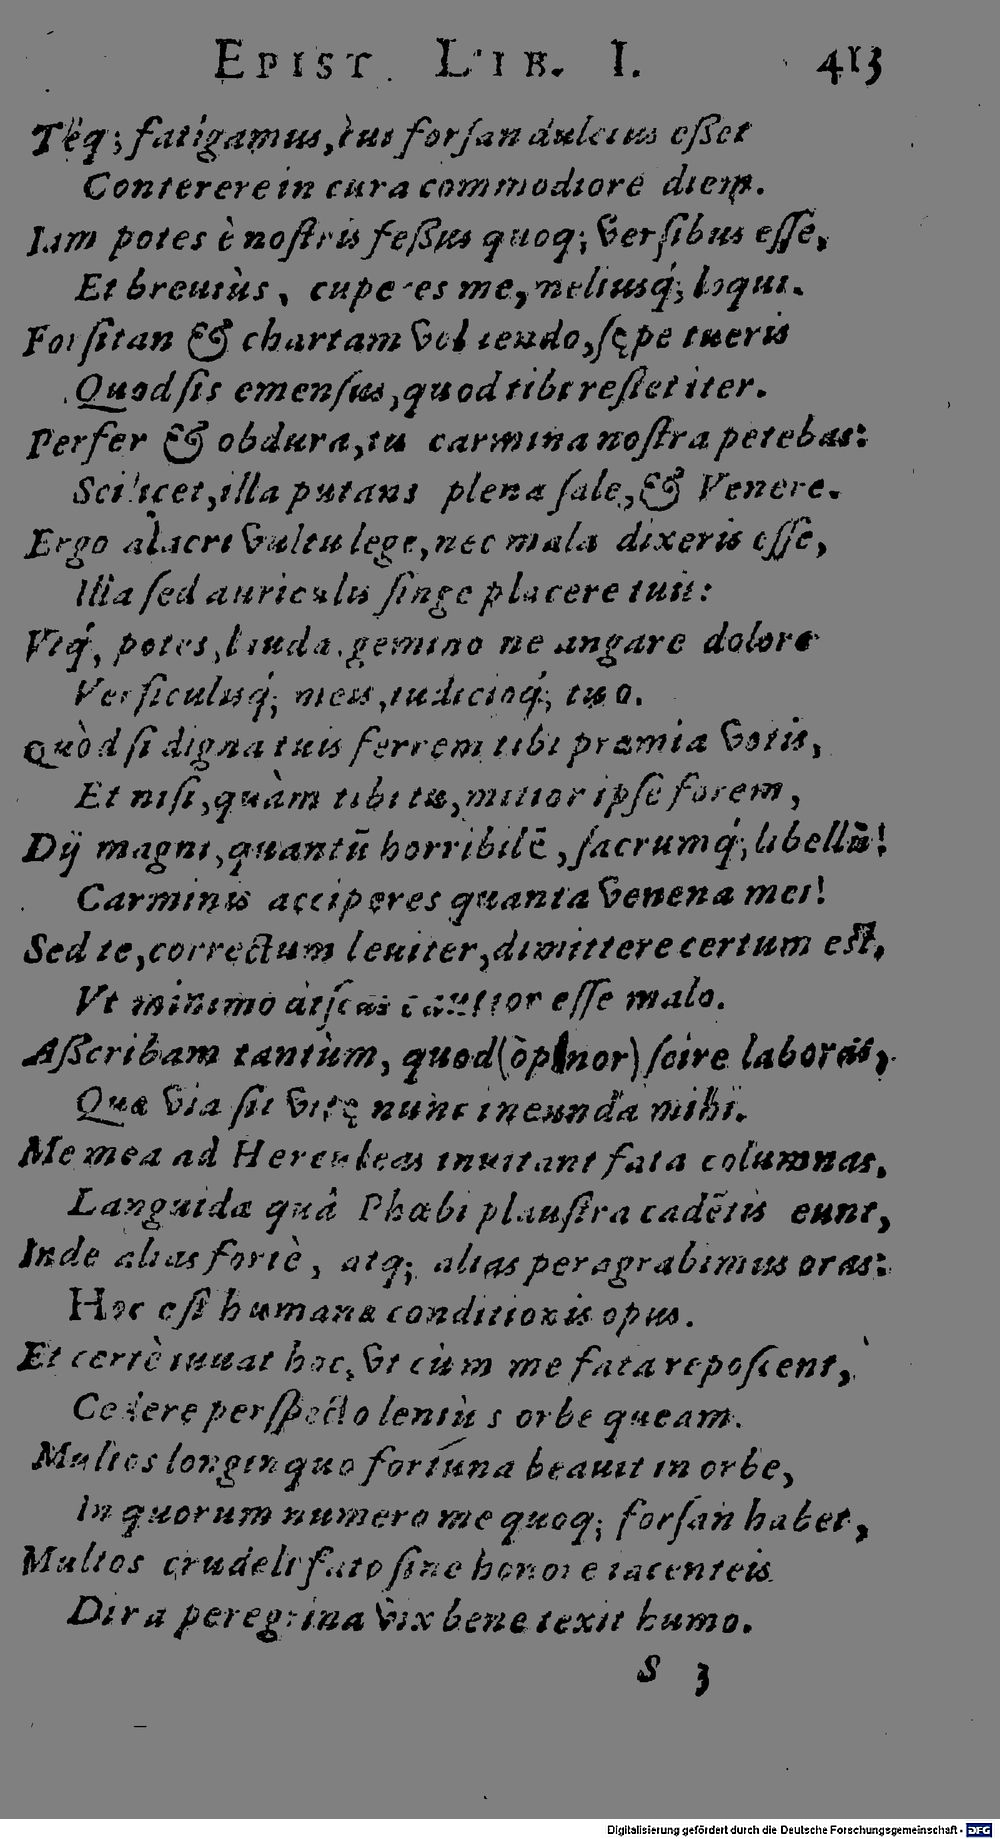 EPIST. LIB. I. 413
Téq; fatigamus, cui forsan dulcius eßet
Conterere in cura commodiore diem.
Iam potes è nostris feßus quoq; versibus esse,
Et breuiùs, cuperes me, meliusq́; loqui.
Forsitan & chartam voluendo, sępe tueris
Quod sis emensus, quod tibi restet iter.
Perfer & obdura, tu carmina nostra petebas:
Scilicet, illa putans plena sale, & Venere.
Ergo alacri vultu lege, nec mala dixeris esse,
Illa sed auriculis finge placere tuis:
Vtq́, potes, lauda, gemino ne angare dolore
Versiculisq́; meis, iudicioq́; tuo.
Quòd si digna tuis ferrem tibi præmia votis,
Et nisi, quàm tibi tu, mitior ipse forem,
Dÿ magni, quantū horribilē, sacrumq́; libellū!
Carminis acciperes quanta venena mei!
Sed te, correctum leuiter, dimittere certum est,
Vt minimo discas cautior esse malo.
Aßcribam tantùm, quod (òpinor) scire laboras,
Quæ via sit vitę nunc ineunda mihi.
Me mea ad Herculeas inuitant fata columnas,
Languida quâ Phœbi plaustra cadētis eunt,
Inde alias fortè, atq; alias peragrabimus oras:
Hoc est humanæ conditionis opus.
Et certè iuuat hoc, vt cùm me fata reposcent,
Cedere perspecto leniùs orbe queam.
Multos longinquo fortuna beauit in orbe,
In quorum numero me quoq; forsan habet,
Multos crudeli fato sine honore iacenteis
Dira peregrina vix bene texit humo.
S 3
Digitalisierung gefördert durch die Deutsche Forschungsgemeinschaft - DFG